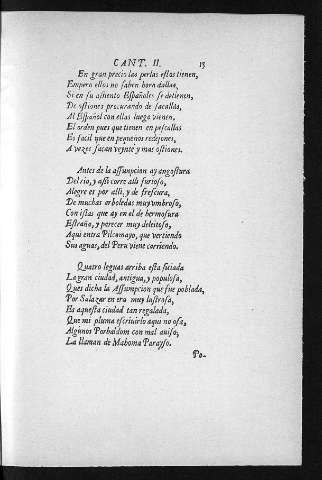 CANT. II. 15
En gran precio las perlas estas tienen,
Empero ellos no saben horadallas,
Si en su assiento Españoles se detienen,
De ostiones procurando de sacallas,
Al Español con ellas luego vienen.
El orden pues que tienen en pescallas
Es facil que en pequeños redejones,
A vezes sacan veynte y mas ostiones.
Antes de la assumpcion ay angostura
Del rio, y assi corre alli furioso,
Alegre es por alli, y de frescura,
De muchas arboledas muy umbroso,
Con islas que ay en el de hermosura
Estraña, y parecer muy deleitoso,
Aqui entra Pilcomayo, que vertiendo
Sus aguas, del Peru viene corriendo.
Quatro leguas arriba esta sitiada
La gran ciudad, antigua, y populosa,
Ques dicha la Assumpcion que fue poblada,
Por Salazar en era muy lustrosa,
Es aquesta ciudad tan regalada,
Que mi pluma escrivirlo aqui no osa,
Algunos Porbaldon con mal aviso,
La llaman de Mahoma Parayso.
Po-